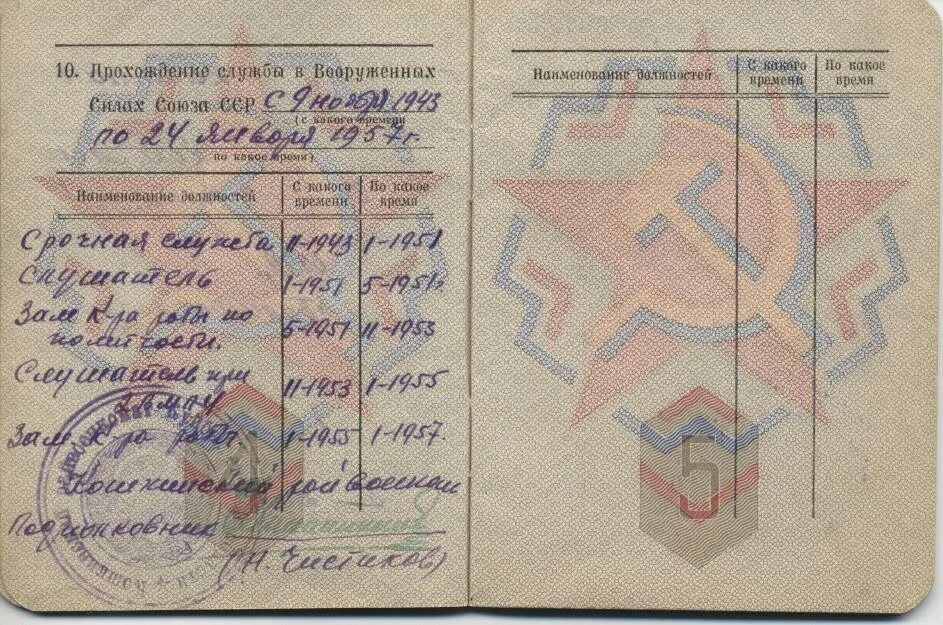 10. Прохождение службы в Вооруженных
Силах Союза ССР с 9 ноября 1943
(с какого времени
по 24 января 1957 г.
по какое время)
Наименование должностей С какого времени По какое время
Срочная служба 11-1943 1-1951
Слушатель 1-1951 5-1951
Зам к-ра роты по
политчасти. 5-1951 11-1953
Слушатель при
11-1953 1-1955
Зам. к-ра роты 1-1955 1-1957.
райвоенком
Подполковник
(Н. Чистиков)
Наименование должностей С какого времени По какое время
5